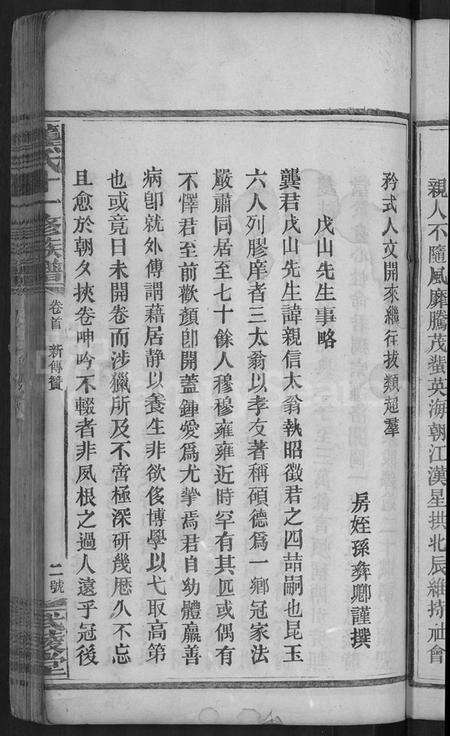 親人不隨風靡騰茂蜚英海朝江漢星拱北辰維持社會
矜式人文開來繼往拔類超羣
房姪孫彝卿謹撰
戊山先生事略
龔君戊山先生諱親信太翁執昭徵君之四喆嗣也昆玉
六人列膠庠者三太翁以孝友著稱碩德為一鄉冠家法
嚴肅同居至七十餘人穆穆雍雍近時罕有其匹或偶有
不懌君至前歡顏卽開蓋鍾愛爲尤摯焉君自幼體羸善
病卽就外傅謂藉居静以養生非欲侈博學以弋取高第
也或竟日未開卷而涉獵所及不啻極深研幾歷久不忘
且愈於朝夕挾卷呻吟不輟者非夙根之過人遠乎冠後
龔氏十一修族譜
卷首
新傳贊
二號